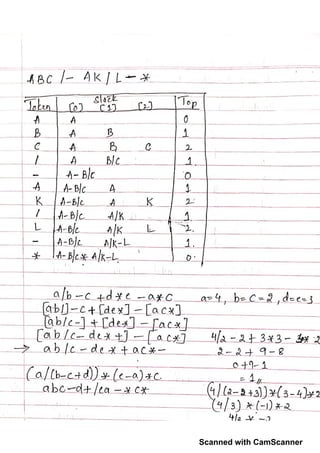 ABC /- AK / L - *
Token Stack [0] [1] [2] Top
A A 0
B A B 1
C A B C 2
/ A B/C 1
- A-B/C 0
A A-B/C A 1
K A-B/C A K 2
/ A-B/C A/K 1
L A-B/C A/K L 2
- A-B/C A/K-L 1
* A-B/C * A/K-L 0
a/b - c + d*e - a*c a=4, b=c=2, d=e=3
[ab/] - c + [de*] - [ac*]
[ab/c-] + [de*] - [ac*]
[ab/c-de*+] - [ac*] 4/2 - 2 + 3*3 -
→ ab/c - de * + ac * - 2 - 2 + 9 - 8
0 + 9 - 8
= 1
(a/(b-c+d))*(e-a)*c
abc-d+/ea-*c* (4/(2-2+3))*(3-4)*2
(4/3)*(-1)*2
Scanned with CamScanner